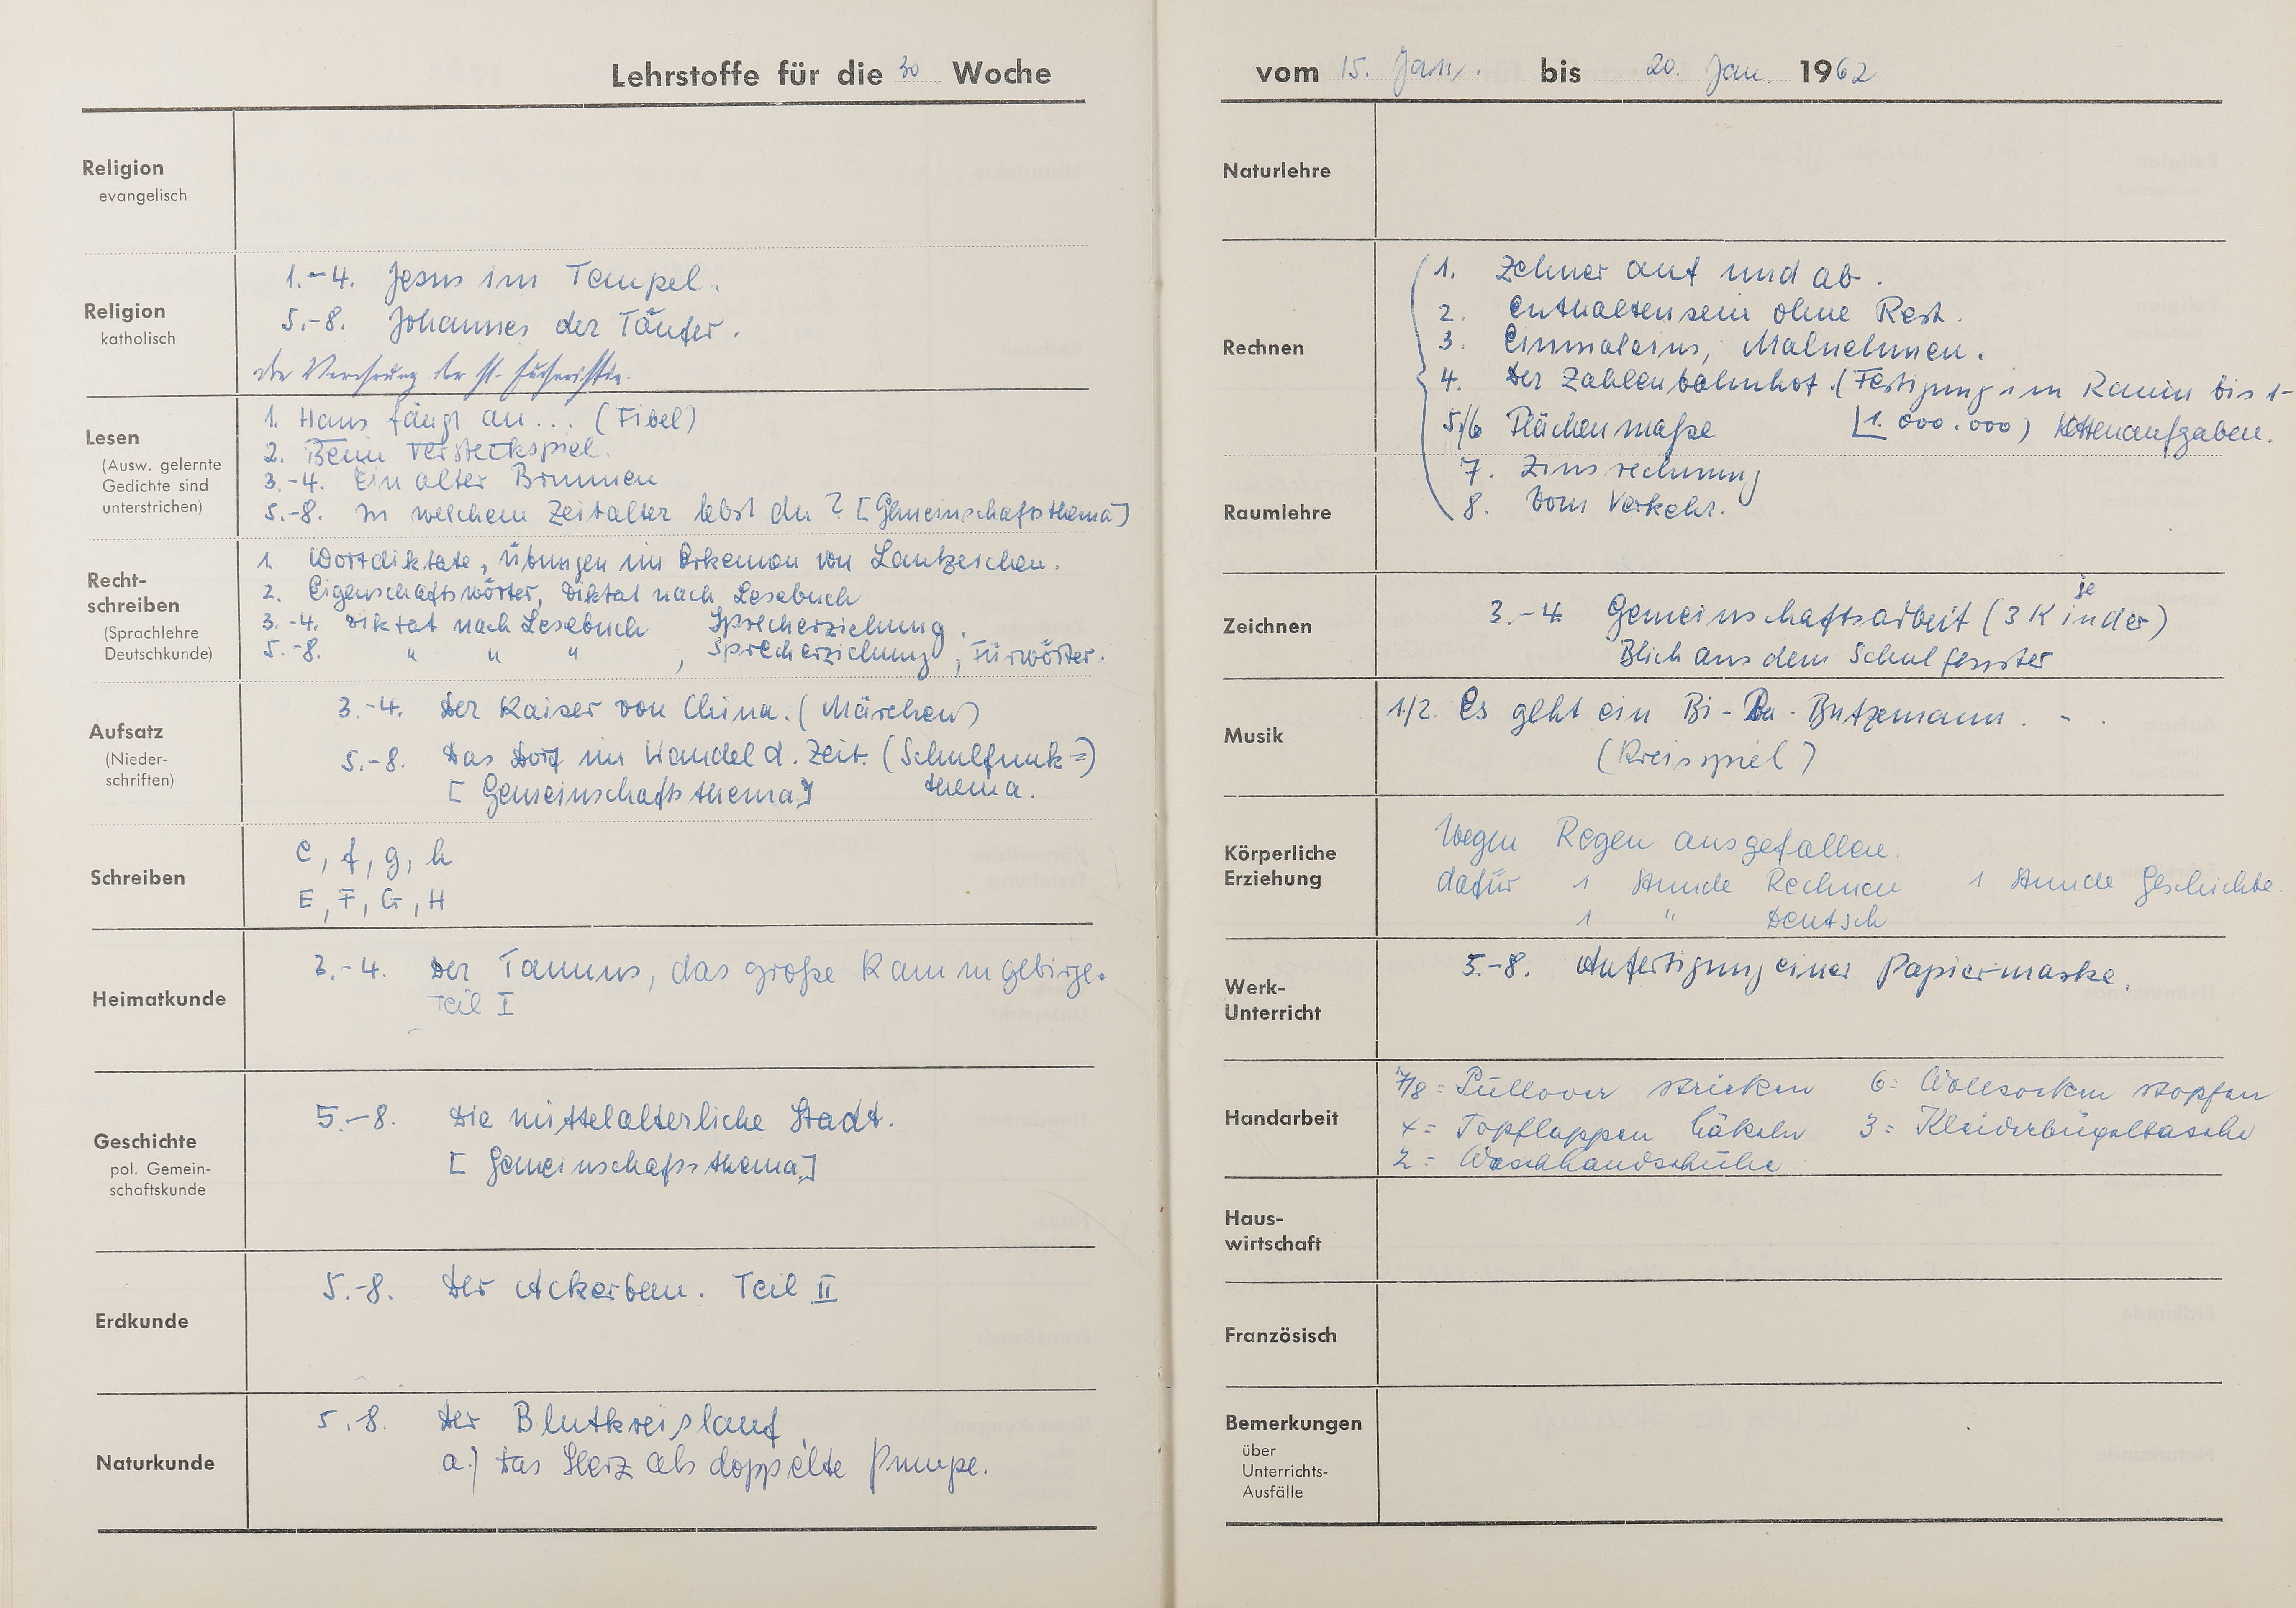 Lehrstoffe für die 30 Woche
Religion
evangelisch
Religion
katholisch
1.-4. Jesus im Tempel.
5.-8. Johannes der Täufer.
die Verehrung der hl. Eucharistie.
Lesen
(Ausw. gelernte
Gedichte sind
unterstrichen)
1. Hans fängt an... (Fibel)
2. Beim Versteckspiel.
3.-4. Ein alter Brunnen
5.-8. In welchem Zeitalter lebst du? [Gemeinschaftsthema]
Recht-
schreiben
(Sprachlehre
Deutschkunde)
1. Wortdiktate, Übungen im Erkennen von Lautzeichen.
2. Eigenschaftswörter, Diktat nach Lesebuch
3.-4. Diktat nach Lesebuch Sprecherziehung.
5.-8. " " " , Sprecherziehung, Fürwörter.
Aufsatz
(Nieder-
schriften)
3.-4. Der Kaiser von China. (Märchen)
5.-8. Das Dorf im Wandel d. Zeit. (Schulfunk=)
[Gemeinschaftsthema] thema.
Schreiben
e, f, g, h
E, F, G, H
Heimatkunde
3.-4. Der Taunus, das große Kammgebirge.
Teil I
Geschichte
pol. Gemein-
schaftskunde
5.-8. Die mittelalterliche Stadt.
[Gemeinschaftsthema]
Erdkunde
5.-8. Der Ackerbau. Teil II
Naturkunde
5.8. Der Blutkreislauf
a.) Das Herz als doppelte Pumpe.
vom 15. Jan. bis 20. Jan. 1962
Naturlehre
Rechnen
1. Zehner auf und ab.
2. Enthaltensein ohne Rest.
3. Einmaleins, Malnehmen.
4. Der Zahlenbahnhof. (Festigung im Raum bis 1-
5./6 Flächenmaße [1.000.000) Kettenaufgaben.
7. Zinsrechnung
Raumlehre
8. Vom Verkehr.
Zeichnen
je
3.-4. Gemeinschaftsarbeit (3 Kinder)
Blick aus dem Schulfenster
Musik
1./2. Es geht ein Bi-Ba-Butzemann. - .
(Kreisspiel)
Körperliche
Erziehung
Wegen Regen ausgefallen.
dafür 1 Stunde Rechnen 1 Stunde Geschichte.
1 " Deutsch
Werk-
Unterricht
5.-8. Anfertigung einer Papiermaske.
Handarbeit
7/8 = Pullover stricken 6 = Wollsocken stopfen
4 = Topflappen häkeln 3 = Kleiderbügeltasche
2 = Waschhandschuhe
Haus-
wirtschaft
Französisch
Bemerkungen
über
Unterrichts-
Ausfälle